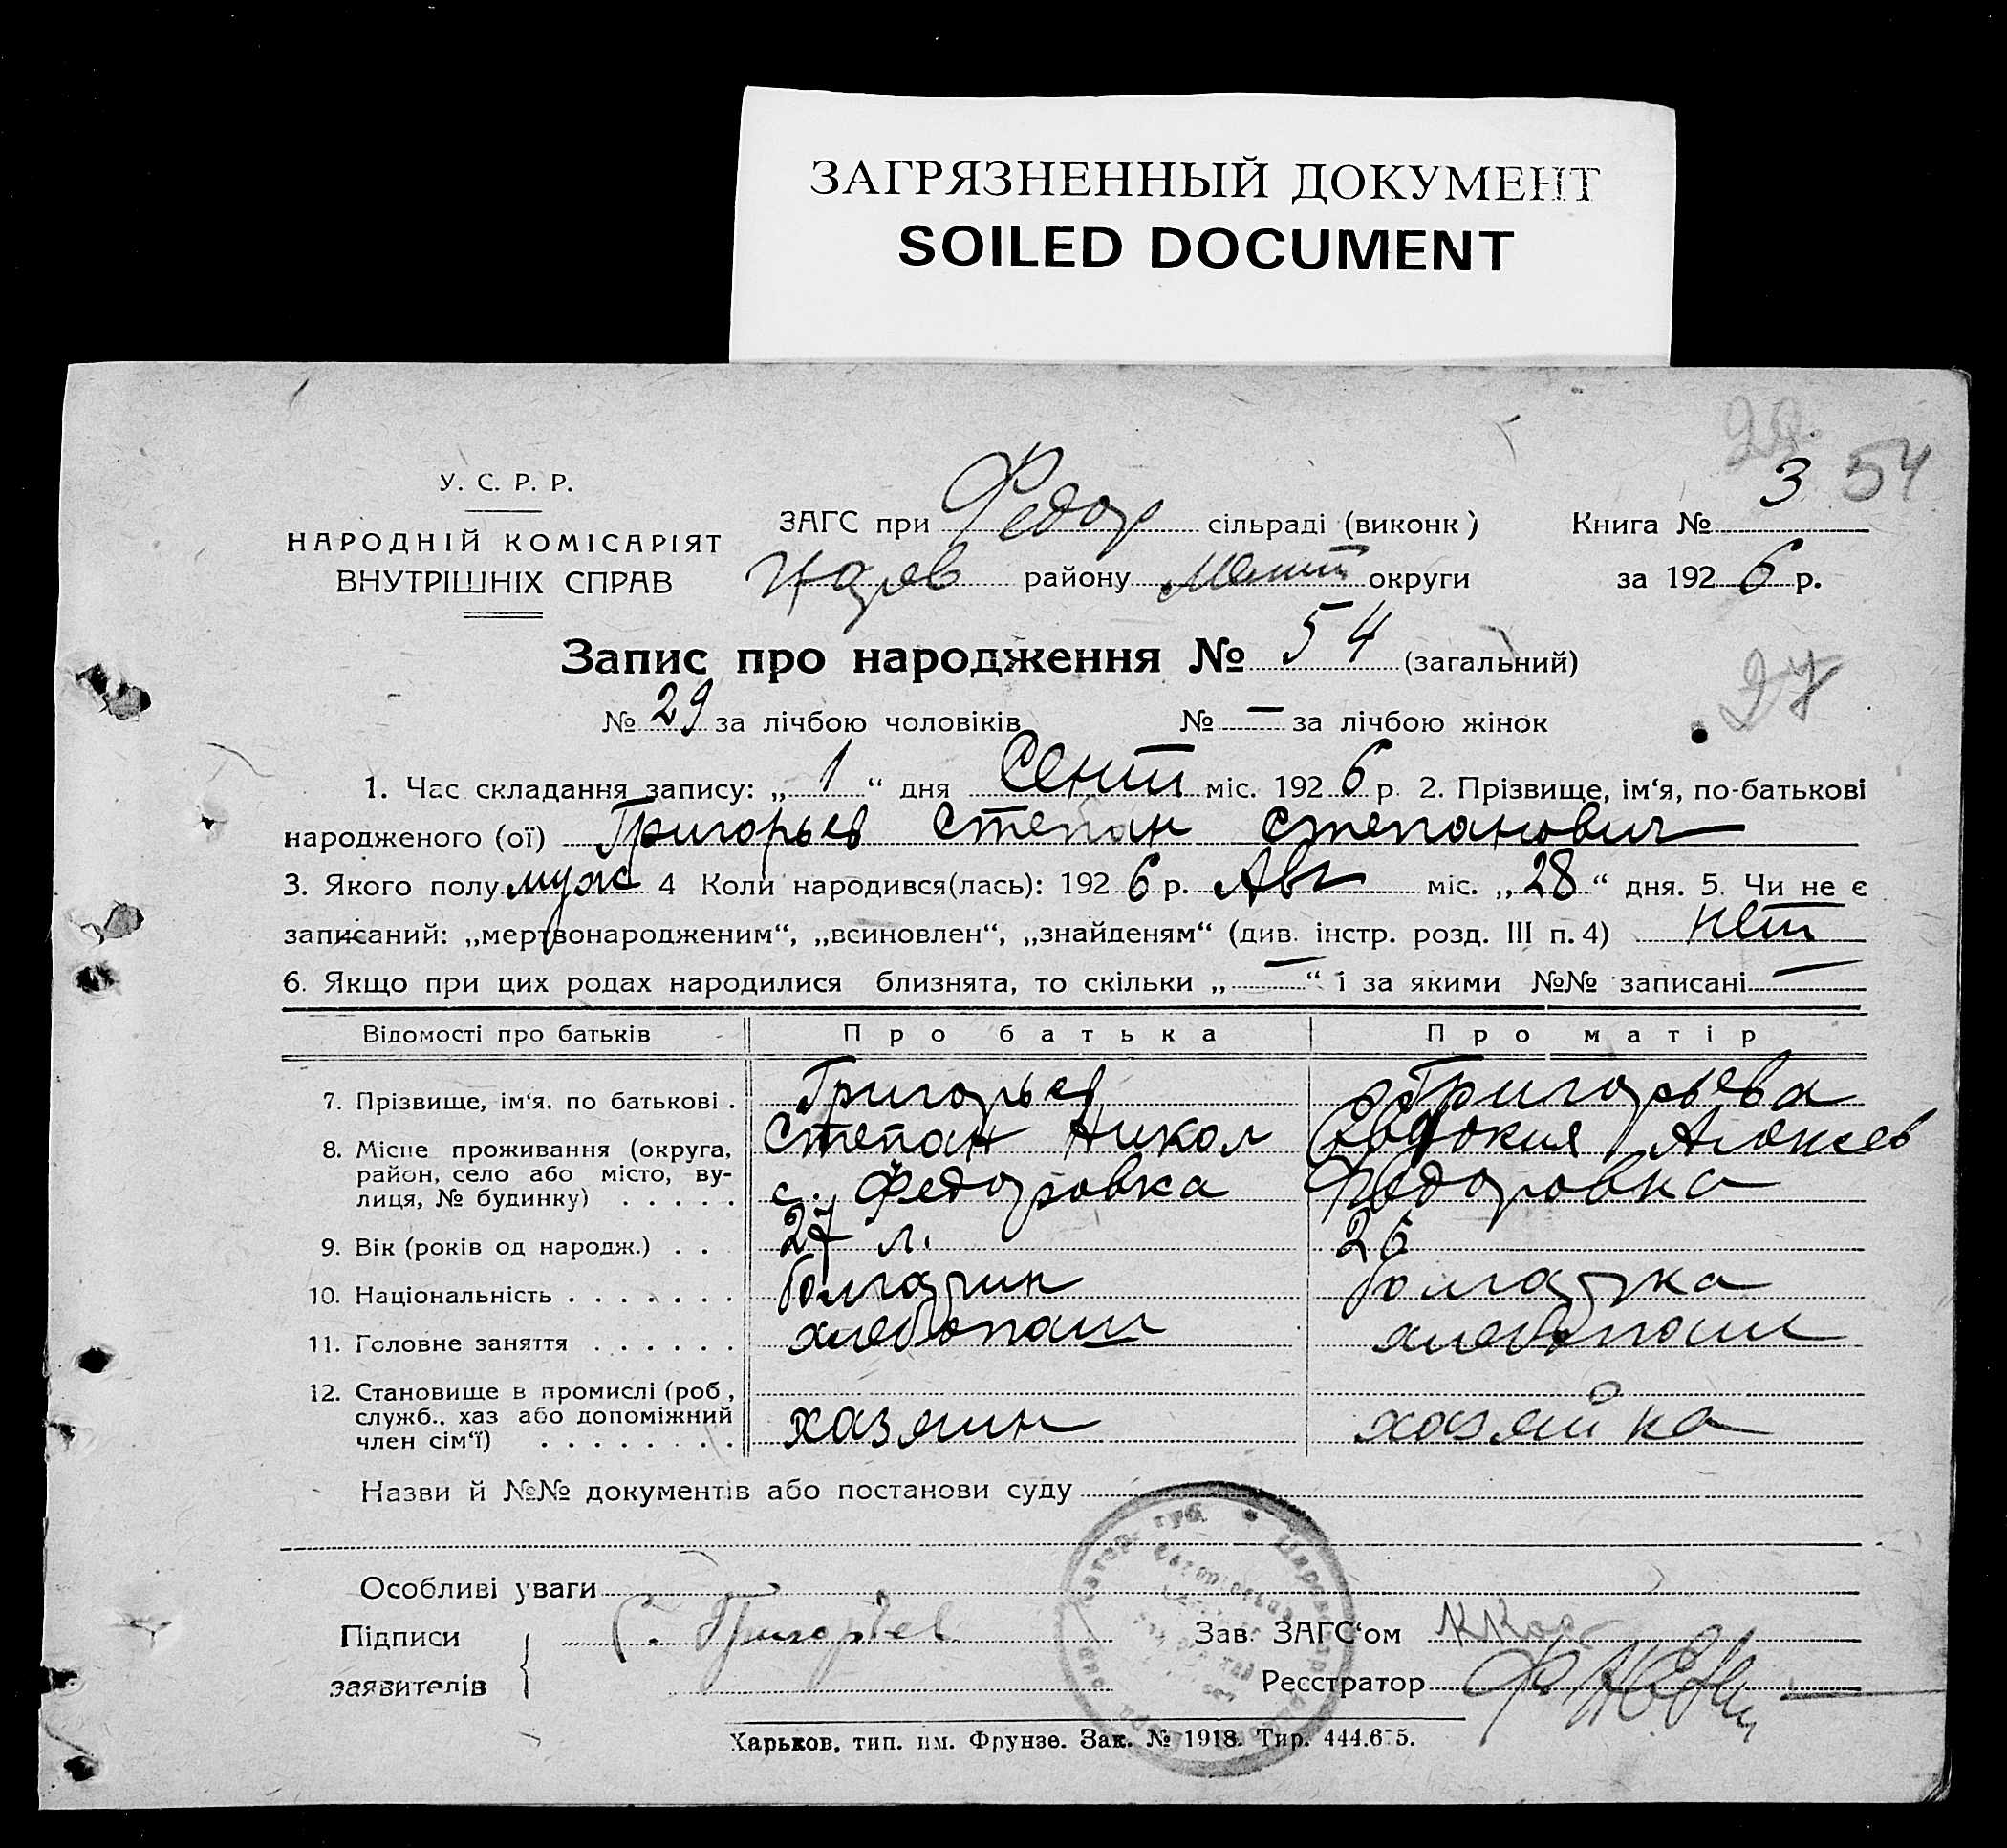 ЗАГРЯЗНЕННЫЙ ДОКУМЕНТ
SOILED DOCUMENT
3 54
У. С. Р. Р.
НАРОДНІЙ КОМІСАРІЯТ
ВНУТРІШНІХ СПРАВ
ЗАГС при Федор сільраді (виконк) Книга № 3
району Меліт округи за 1926 р.
Запис про народження № 54 (загальний)
№ 29 за лічбою чоловіків № — за лічбою жінок
27
1. Час складання запису: „ 1 “ дня Сент міс. 1926 р. 2. Прізвище, ім‘я, по-батькові
народженого (ої) Григорьев Степан Степанович
3. Якого полу муж 4 Коли народився(лась): 1926 р. Авг міс. „28“ дня. 5. Чи не є
записаний: „мертвонародженим“, „всиновлен“, „знайденям“ (див. інстр. розд. III п. 4) нет
6. Якщо при цих родах народилися близнята, то скільки „ — “ і за якими №№ записані —
Відомості про батьків Про батька Про матір
7. Прізвище, ім‘я, по батькові . Григорьев Григорьева
Степан Никол Евдокия Алексев
8. Місце проживання (округа,
район, село або місто, ву-
лиця, № будинку) . . . . . с. Федоровка Федоровка
9. Вік (років од народж.) . . 27 л. 26
10. Національність . . . . . . . болгарин болгарка
11. Головне заняття . . . . . . хлебопаш хлебопаш
12. Становище в промислі (роб.,
служб., хаз або допоміжний
член сім‘ї) . . . . . . . . хазяин хазяйка
Назви й №№ документів або постанови суду
Особливі уваги
Підписи
заявителів
С. Григорьев
Зав. ЗАГС‘ом
Реєстратор
Харьков, тип. им. Фрунзе. Зак. № 1918. Тир. 444.675.